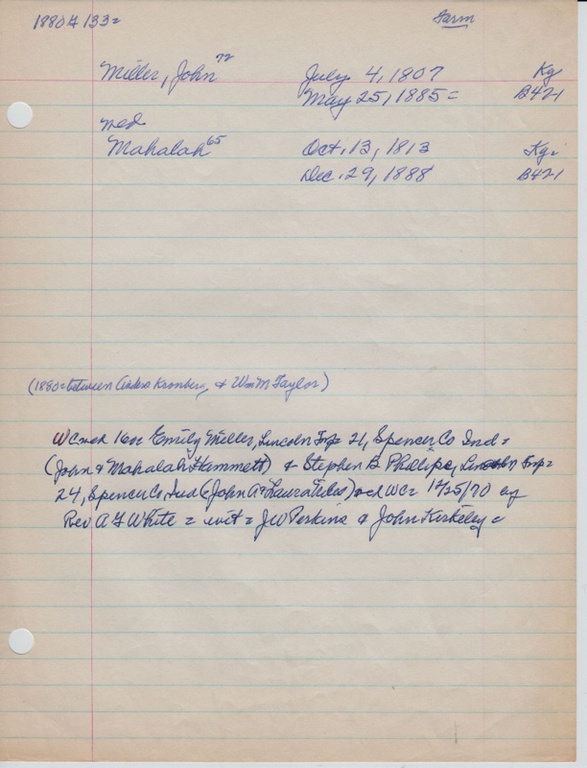 1880 # 133= Farm
Miller, John 72 July 4, 1807 Kg
May 25, 1885= B421
med
Mahalah 65 Oct. 13, 1813 Kg=
Dec. 29, 1888 B421
(1880= between Anders Kronberg, & Wm M Taylor)
WC med Emily Miller, Lincoln Twp= 21, Spencer Co Ind=
(John & Mahalah Hammett) & Stephen B Phelips, Lincoln Twp=
24, Spencer Co, Ind (John A & Laura) WC= /25/70 by
Rev A F White = wit = JW Perkins & John Kerkeley=